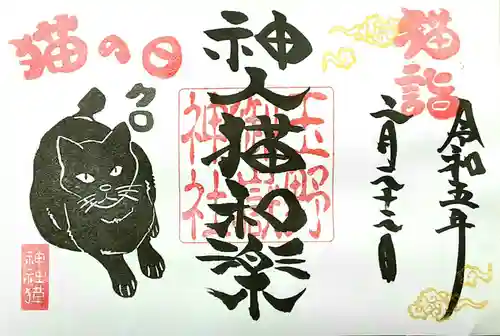 猫詣
令和五年
二月二十二日
神人猫和楽
玉野
御嶽
神社
猫の日
クロ
神社猫